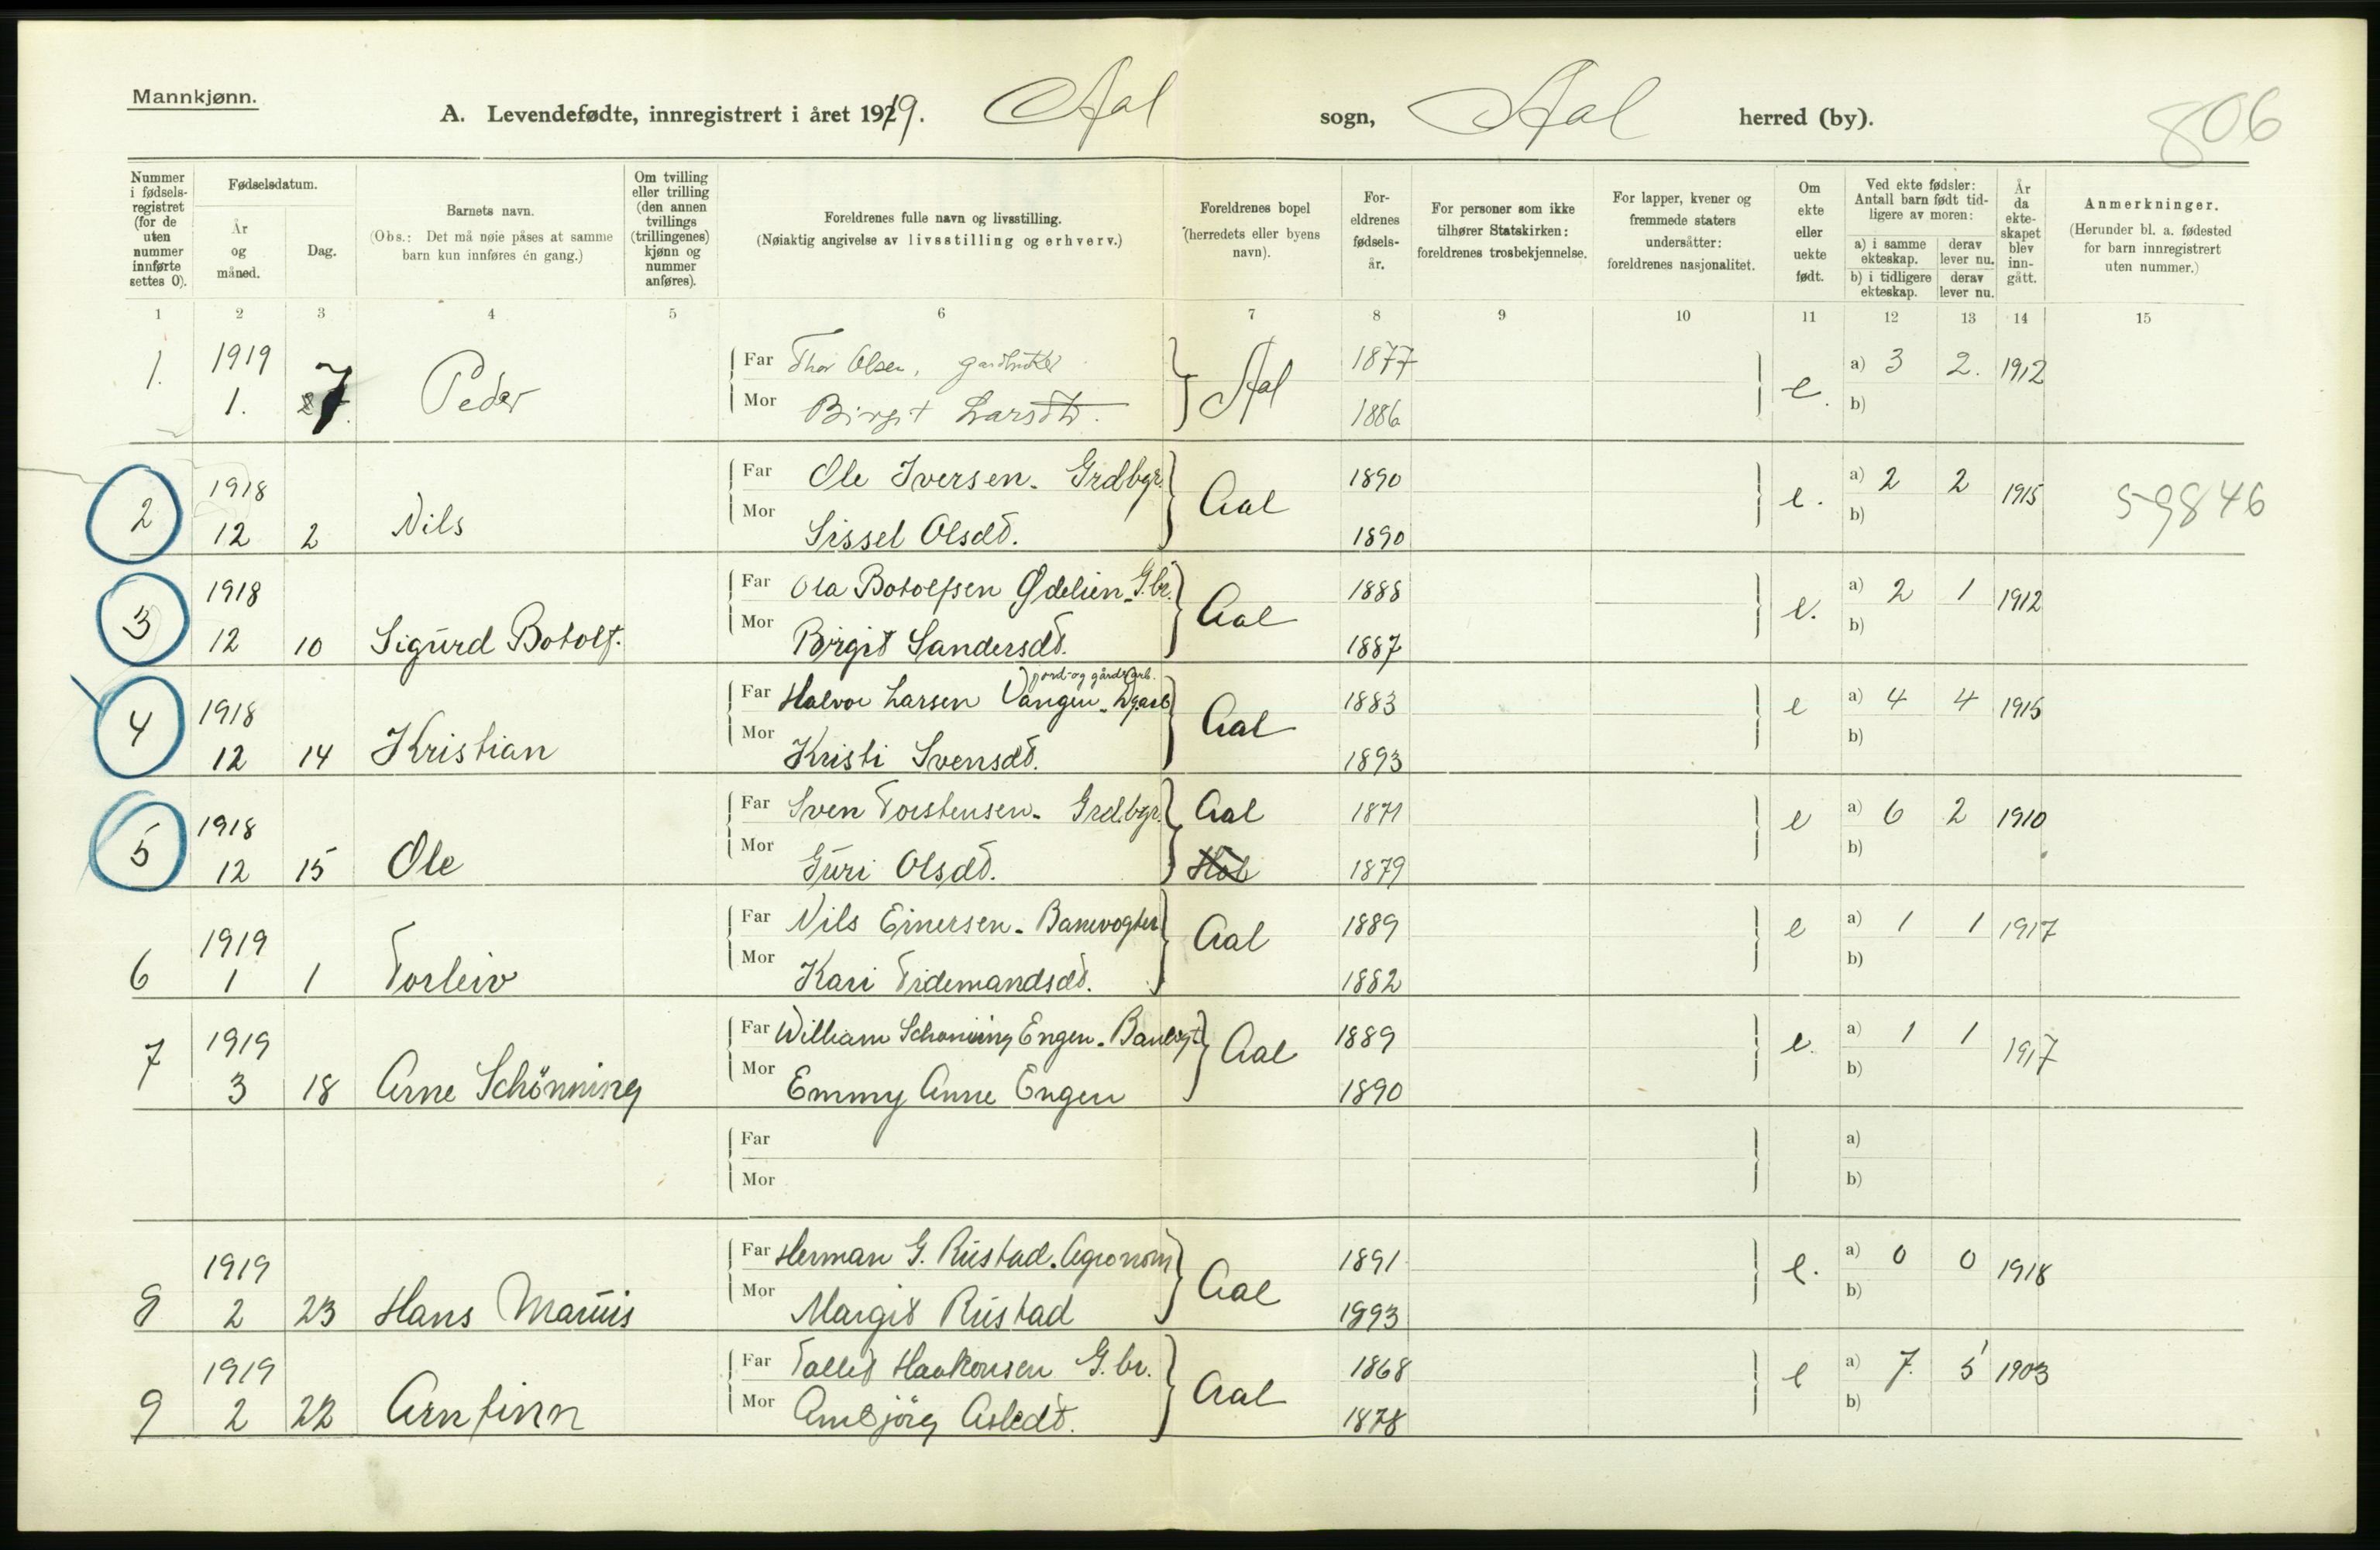 Mannkjønn.
A. Levendefødte, innregistrert i året 1919. Aal sogn, Aal herred (by).
806
Nummer i fødsels-registret (for de uten nummer innførte settes 0).
Fødselsdatum.
År og måned.
Dag.
Barnets navn.
(Obs.: Det må nøie påses at samme barn kun innføres én gang.)
Om tvilling eller trilling (den annen tvillings (trillingenes) kjønn og nummer anføres).
Foreldrenes fulle navn og livsstilling.
(Nøiaktig angivelse av livsstilling og erhverv.)
Foreldrenes bopel (herredets eller byens navn).
For-eldrenes fødsels-år.
For personer som ikke tilhører Statskirken: foreldrenes trosbekjennelse.
For lapper, kvener og fremmede staters undersåtter: foreldrenes nasjonalitet.
Om ekte eller uekte født.
Ved ekte fødsler: Antall barn født tid-ligere av moren:
a) i samme ekteskap. derav lever nu.
b) i tidligere ekteskap. derav lever nu.
År da ekte-skapet blev inn-gått.
Anmerkninger.
(Herunder bl. a. fødested for barn innregistrert uten nummer.)
1 2 3 4 5 6 7 8 9 10 11 12 13 14 15
1. 1919 Far Thor Olsen, gardbruker Aal 1877 e. a) 3 2. 1912
1. 7 Peder Mor Birgit Larsdtr. 1886 b)
2 1918 Far Ole Iversen - Grdbgr. Aal 1890 e. a) 2 2 1915 59846
12 2 Nils Mor Sissel Olsdd. 1890 b)
3 1918 Far Ola Botolfsen Ødelien - G.br. Aal 1888 e. a) 2 1 1912
12 10 Sigurd Botolf. Mor Birgit Sandersdd. 1887 b)
jord-og gårdsarb.
4 1918 Far Halvor Larsen Vangen - Aal 1883 e a) 4 4 1915
12 14 Kristian Mor Kristi Svensdd. 1893 b)
5 1918 Far Sven Torstensen - Grdbgr. Aal 1871 e a) 6 2 1910
12 15 Ole Mor Guri Olsdd. Hol 1879 b)
6 1919 Far Nils Einersen - Banevogter Aal 1889 e a) 1 1 1917
1 1 Torleiv Mor Kari Tidemandsdd. 1882 b)
7 1919 Far William Schønning Engen - Banevogt Aal 1889 e. a) 1 1 1917
3 18 Arne Schönning Mor Emmy Anne Engen 1890 b)
Far a)
Mor b)
8 1919 Far Herman G. Rustad. Agronom Aal 1891 e. a) 0 0 1918
2 23 Hans Marius Mor Margit Rustad 1893 b)
9 1919 Far Tolleif Haakonsen G.br. Aal 1868 e a) 7. 5 1903
2 22 Arnfinn Mor Ambjörg Asledd. 1878 b)